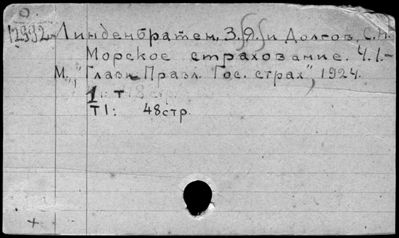 О
12992
Линденбратен, З.Я. и Долгов, С.Н.
Морское страхование. Ч.1.-
М., "Главн. Правл. Гос. страх", 1924.
1. т
Т1: 48стр.
+